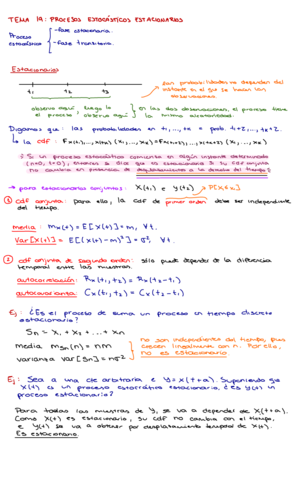 TEMA 19: PROCESOS ESTOCÁSTICOS ESTACIONARIOS
Proceso estocástico
- fase estacionaria.
- fase transitoria.
Estacionarios
t1 t2 t3
observo aquí el proceso
luego lo observo aquí
en las dos observaciones, el proceso tiene la misma aleatoriedad.
son probabilidades no dependen del instante en el que se hacen las observaciones.
Digamos que: las probabilidades en t1, ..., tk = prob. t1+τ, ..., tk+τ.
↳ la cdf: Fx(t1),...,x(tk) (x1, ..., xk) = Fx(t1+τ),...,x(tk+τ) (x1, ..., xk)
¡ Si un proceso estocástico comienza en algún instante determinado (n=0, t=0), entonces se dice que es estacionario si su cdf conjunta no cambia en presencia de desplazamientos a la derecha del tiempo !
→ para estacionarios conjuntos: X(t1) e y(t2)
① cdf conjunta: para ello, la cdf de primer orden debe ser independiente del tiempo.
media: mx(t) = E[X(t)] = m, ∀t.
Var[X(t)] = E[(X(t)-m)²] = σ², ∀t.
② cdf conjunta de segundo orden: sólo puede depender de la diferencia temporal entre las muestras.
autocorrelación: Rx(t1, t2) = Rx(t2-t1)
autocovarianza: Cx(t1, t2) = Cx(t2-t1)
Ej: ¿Es el proceso de suma un proceso en tiempo discreto estacionario?
Sn = X1 + X2 + ... + Xn
media mSn(n) = nm
varianza var[Sn] = nσ²
no son independientes del tiempo, pues crecen linealmente con n. Por ello, no es estacionario.
Ej: Sea a una cte arbitraria e Y=X(t+a). Suponiendo que X(t) es un proceso estocástico estacionario, ¿es y(t) un proceso estacionario?
Para todas las muestras de Y, se va a depender de X(t+a).
Como X(t) es estacionario, su cdf no cambia con el tiempo, e Y(t) se va a obtener por desplazamiento temporal de X(t).
Es estacionario.